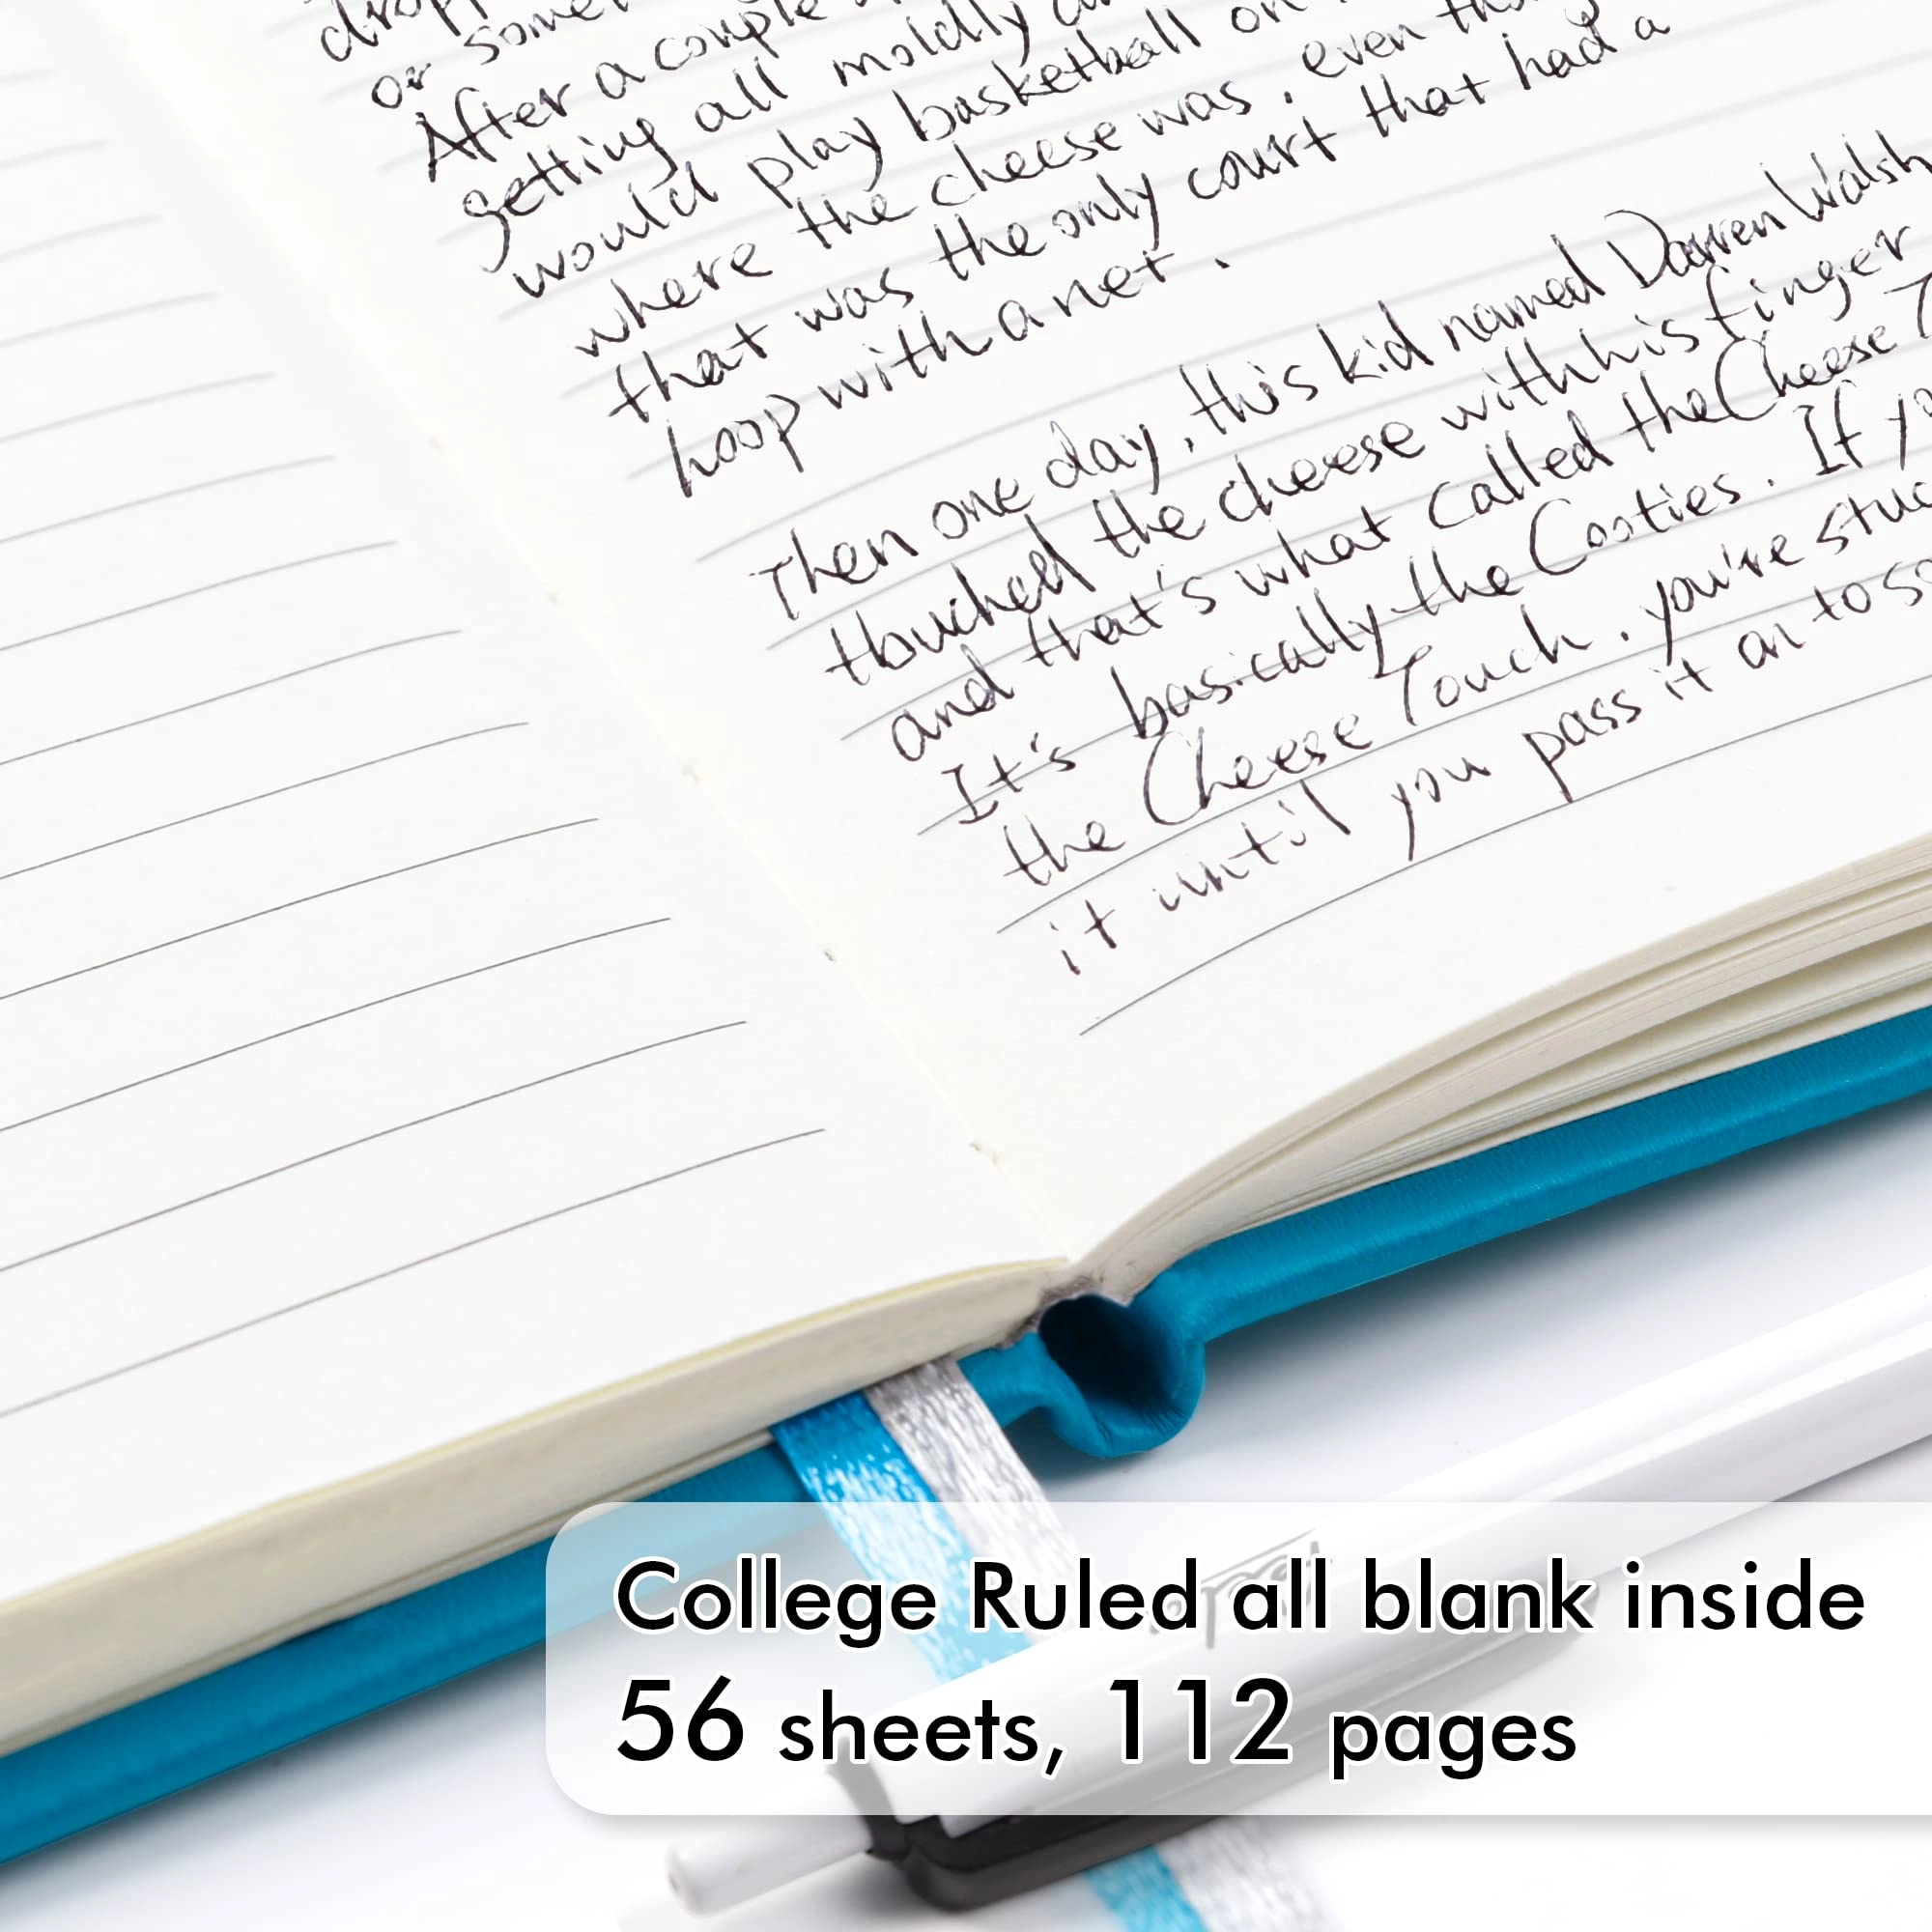 or
After a couple
getting all moldy
would play basketball on
where the cheese was. even
that was the only court that had a
hoop with a net.
Then one day, this kid named Darren Walsh
touched the cheese with his finger
and that's what called the Cheese T
It's basically the Cooties. If yo
the Cheese Touch, you're stuc
it until you pass it on to so
College Ruled all blank inside
56 sheets, 112 pages